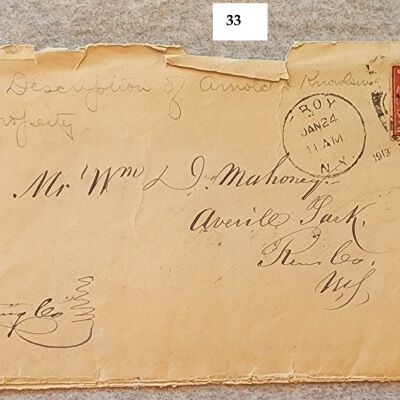 33
Description of Arnold & Knowlson
Property
TROY
JAN 24
11 AM
N.Y.
1913
Mr. Wm D. Mahoney.
Averill Park,
Rens. Co.
N.Y.
Co